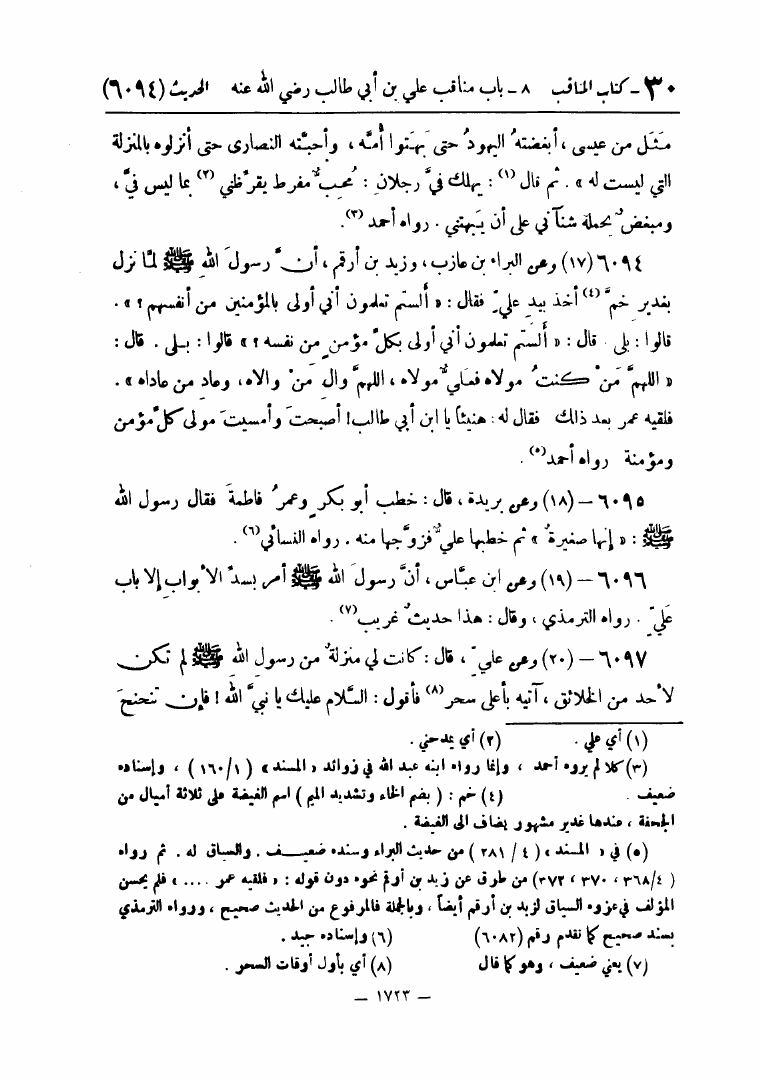 ٣٠ - كتاب المناقب ٨ - باب مناقب علي بن أبي طالب رضي الله عنه الحديث (٦٠٩٤)
مَثَل من عيسى ، أبغضتهُ اليهودُ حتى بَهَتوا أُمَّه ، وأحبَّته النصارى حتى أنزلوه بالمنزلة
التي ليست له » . ثم قال (١) : يهلك فيَّ رجلانِ : مُحِبٌّ مفرط يقرِّظني (٢) بما ليس فيَّ ،
ومبغضٌ يحملة شنآني على أن يَبهتني . رواه أحمد (٣).
٦٠٩٤ (١٧) وعن البراء بن عازب ، وزيد بن أرقم ، أنَّ رسولَ اللهِ ﷺ لمَّا نزل
بغديرِ خمٍّ (٤) أخذ بيدِ عليّ فقال : « ألستم تعلمون أني أولى بالمؤمنين من أنفسهم ؟ » .
قالوا : بلى . قال : « ألستم تعلمون أني أولى بكلِّ مؤمنٍ من نفسه ؟ » قالوا : بلى . قال :
« اللهمَّ مَنْ كنتُ مولاه فعليٌّ مولاه ، اللهمَّ والِ مَنْ والاه ، وعادِ من عاداه » .
فلقيه عمر بعد ذالك فقال له : هنيئاً يا ابن أبي طالب! أصبحتَ وأمسيتَ مولى كلِّ مؤمن
ومؤمنة رواه أحمد (٥) .
٦٠٩٥ – (١٨) وعن بريدة ، قال : خطب أبو بكرٍ وعمرُ فاطمةَ فقال رسول الله
ﷺ : « إنها صغيرةٌ » ثم خطبها عليٌّ فزوَّجها منه . رواه النسائي (٦) .
٦٠٩٦ – (١٩) وعن ابن عبَّاس ، أنَّ رسولَ الله ﷺ أمر بسدِّ الأبوابِ إلا باب
عَليّ . رواه الترمذي ، وقال : هذا حديثٌ غريب (٧) .
٦٠٩٧ – (٢٠) وعن عليّ ، قال : كانت لي منزلةٌ من رسولِ الله ﷺ لم تكن
لأحد من الخلائق ، آتيه بأعلى سحر (٨) فأقول : السَّلام عليك يا نبيَّ الله ! فإن تنحنحَ
(١) أي علي . (٢) أي يمدحني .
(٣) كلا لم يروه أحمد ، وإنما رواه ابنه عبد الله في زوائد « المسند » ( ١/ ١٦٠ ) ، وإسناده
ضعيف . (٤) خم : ( بضم الخاء وتشديد الميم ) اسم الغيضة على ثلاثة أميال من
الجحفة ، عندها غدير مشهور يضاف الى الغيضة .
(٥) في « المسند » ( ٤ / ٢٨١ ) من حديث البراء وسنده ضعيف . والسياق له . ثم رواه
( ٤/ ٣٦٨ ، ٣٧٠ ، ٣٧٢) من طرق عن زيد بن أرقم نحوه دون قوله : « فلقيه عمر .... » فلم يحسن
المؤلف في عزوه السياق لزيد بن أرقم أيضاً ، وبالجملة فالمرفوع من الحديث صحيح ، ورواه الترمذي
بسند صحيح كما تقدم رقم (٦٠٨٢) (٦) وإسناده جيد .
(٧) يعني ضعيف ، وهو كما قال (٨) أي بأول أوقات السحر .
— ١٧٢٣ —